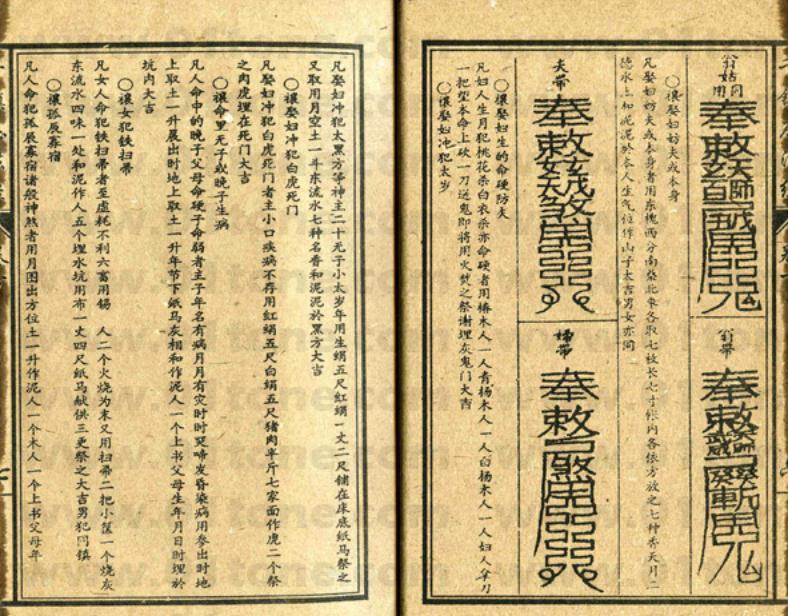 翁姑同用
奉敕
翁帶
奉敕
德水土和泥泥於本人生氣位作山子大吉男女亦同
凡娶妇妨夫或本身者用东槐西分南桑北枣各取七枝长七寸帐内各依方放之七种香天月二
○禳娶妇妨夫或本身
夫帶
奉敕
婦帶
奉敕
○禳娶妇生的命硬防夫
凡妇人生月犯桃花杀白衣杀亦命硬者用椿木人一人青杨木人一人白杨木人一人妇人拿刀
一把望本命上砍一刀送鬼即将用火焚之祭谢埋灰鬼门大吉
○禳娶妇冲犯太岁
凡娶妇冲犯太黑方等神主二十无子小太岁年用生绢五尺红绢一丈二尺铺在床底纸马祭之
又取用月空土一斗东流水七种名香和泥泥於黑方大吉
○禳娶妇冲犯白虎死门
凡娶妇冲犯白虎死门者主小口疾病不存用红绢五尺白绢五尺猪肉半斤七家面作虎二个祭
之肉虎埋在死门大吉
○禳命里无子或晚子生病
凡人命中的晚子父母命硬子命弱者主子年名有病月月有灾时时哭啼发昏染病用参出时地
上取土一升晨出时地上取土一升年节下纸马灰相和作泥人一个上书父母生年月日时埋於
坑内大吉
○禳女犯铁扫帚
凡女人命犯铁扫帚者至虚耗不利六畜用锡 人二个火烧为末又用扫帚二把小筐一个烧灰
东流水四味一处和泥作人五个埋水坑用布一丈四尺纸马献供三更祭之大吉男犯同镇
○禳孤辰寡宿
凡人命犯孤辰寡宿诸般神煞者用月图出方位土一升作泥人一个木人一个上书父母年
www.91tone.com